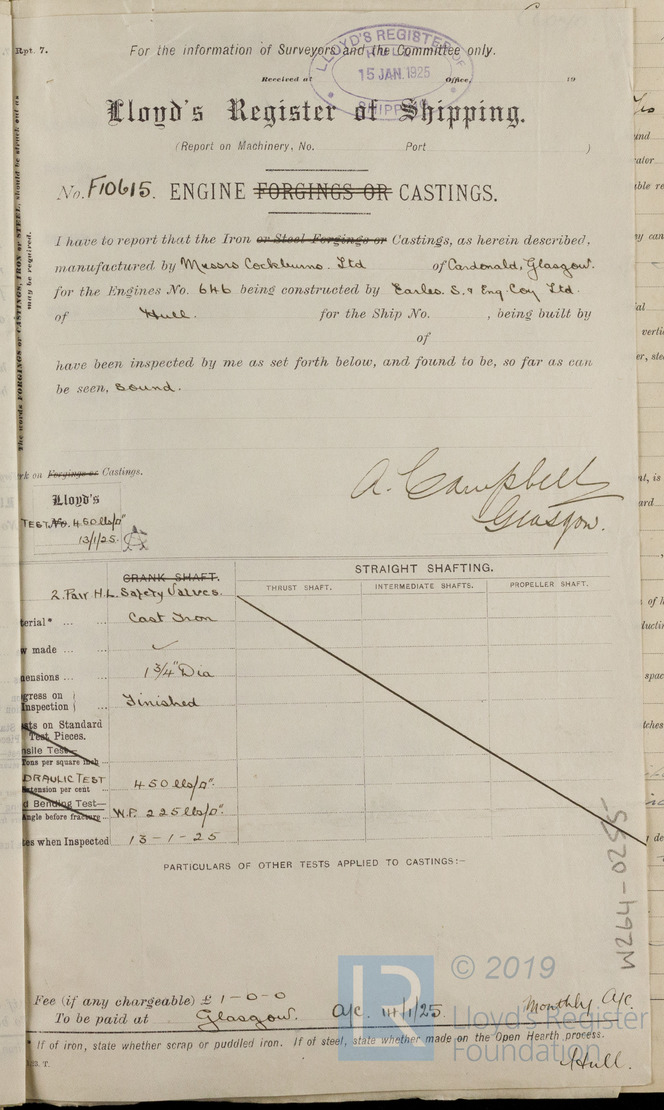 Rpt. 7.
For the information of Surveyors and the Committee only.
LLOYD'S REGISTER OF SHIPPING
HULL
15 JAN. 1925
Received at Office, 19
Lloyd's Register of Shipping.
(Report on Machinery, No. Port )
No. F10615. ENGINE FORGINGS OR CASTINGS.
I have to report that the Iron or Steel Forgings or Castings, as herein described,
manufactured by Messrs Cockburns. Ltd of Cardonald, Glasgow.
for the Engines No. 646 being constructed by Earles. S. & Eng. Coy Ltd.
of Hull. for the Ship No. , being built by
of
have been inspected by me as set forth below, and found to be, so far as can
be seen, sound.
The words FORGINGS or CASTINGS, IRON or STEEL, should be struck out as
may be required.
rk on Forgings or Castings.
A. Campbell
Glasgow.
Lloyd's
TEST No. 450 lbs/□"
13/1/25.
CRANK SHAFT.
STRAIGHT SHAFTING.
THRUST SHAFT. INTERMEDIATE SHAFTS. PROPELLER SHAFT.
2. Pair H.L. Safety Valves.
terial* ... ... Cast Iron
w made ... ... ✓
ensions ... ... 1 3/4" Dia
gress on
Inspection ... Finished
sts on Standard
Test Pieces.
nsile Test—
Tons per square inch ...
DRAULIC TEST 450 lbs/□".
Extension per cent ...
d Bending Test—
Angle before fracture ... W.P. 225 lbs/□".
tes when Inspected 13-1-25
PARTICULARS OF OTHER TESTS APPLIED TO CASTINGS:—
W264-0255
© 2019
LR
Lloyd's Register
Foundation
Fee (if any chargeable) £ 1-0-0
Monthly A/c.
To be paid at Glasgow.
* If of iron, state whether scrap or puddled iron. If of steel, state whether made on the Open Hearth process.
Hull.